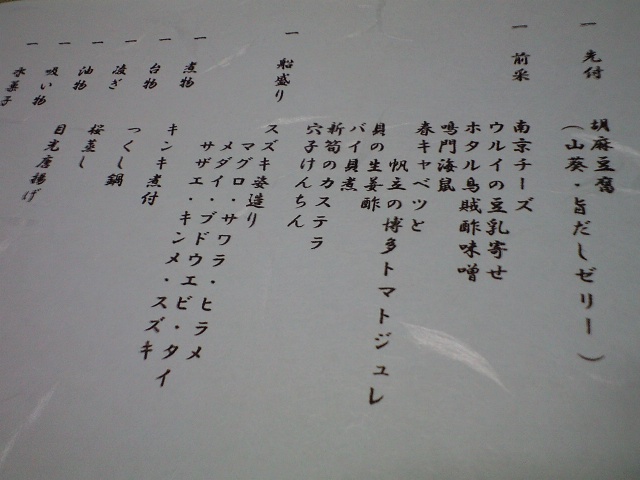 一 先付 胡麻豆腐
(山葵・旨だしゼリー)
一 前采 南京チーズ
ウルイの豆乳寄せ
ホタル烏賊酢味噌
鳴門海鼠
春キャベツと
帆立の博多トマトジュレ
貝の生姜酢
バイ貝煮
新筍のカステラ
穴子けんちん
一 船盛り スズキ姿造り
マグロ・サワラ・ヒラメ
メダイ・ブドウエビ・タイ
サザエ・キンメ・スズキ
一 煮物 キンキ煮付
一 台物 つくし鍋
一 凌ぎ 桜蒸し
一 油物 目光唐揚げ
一 吸い物
一 水菓子